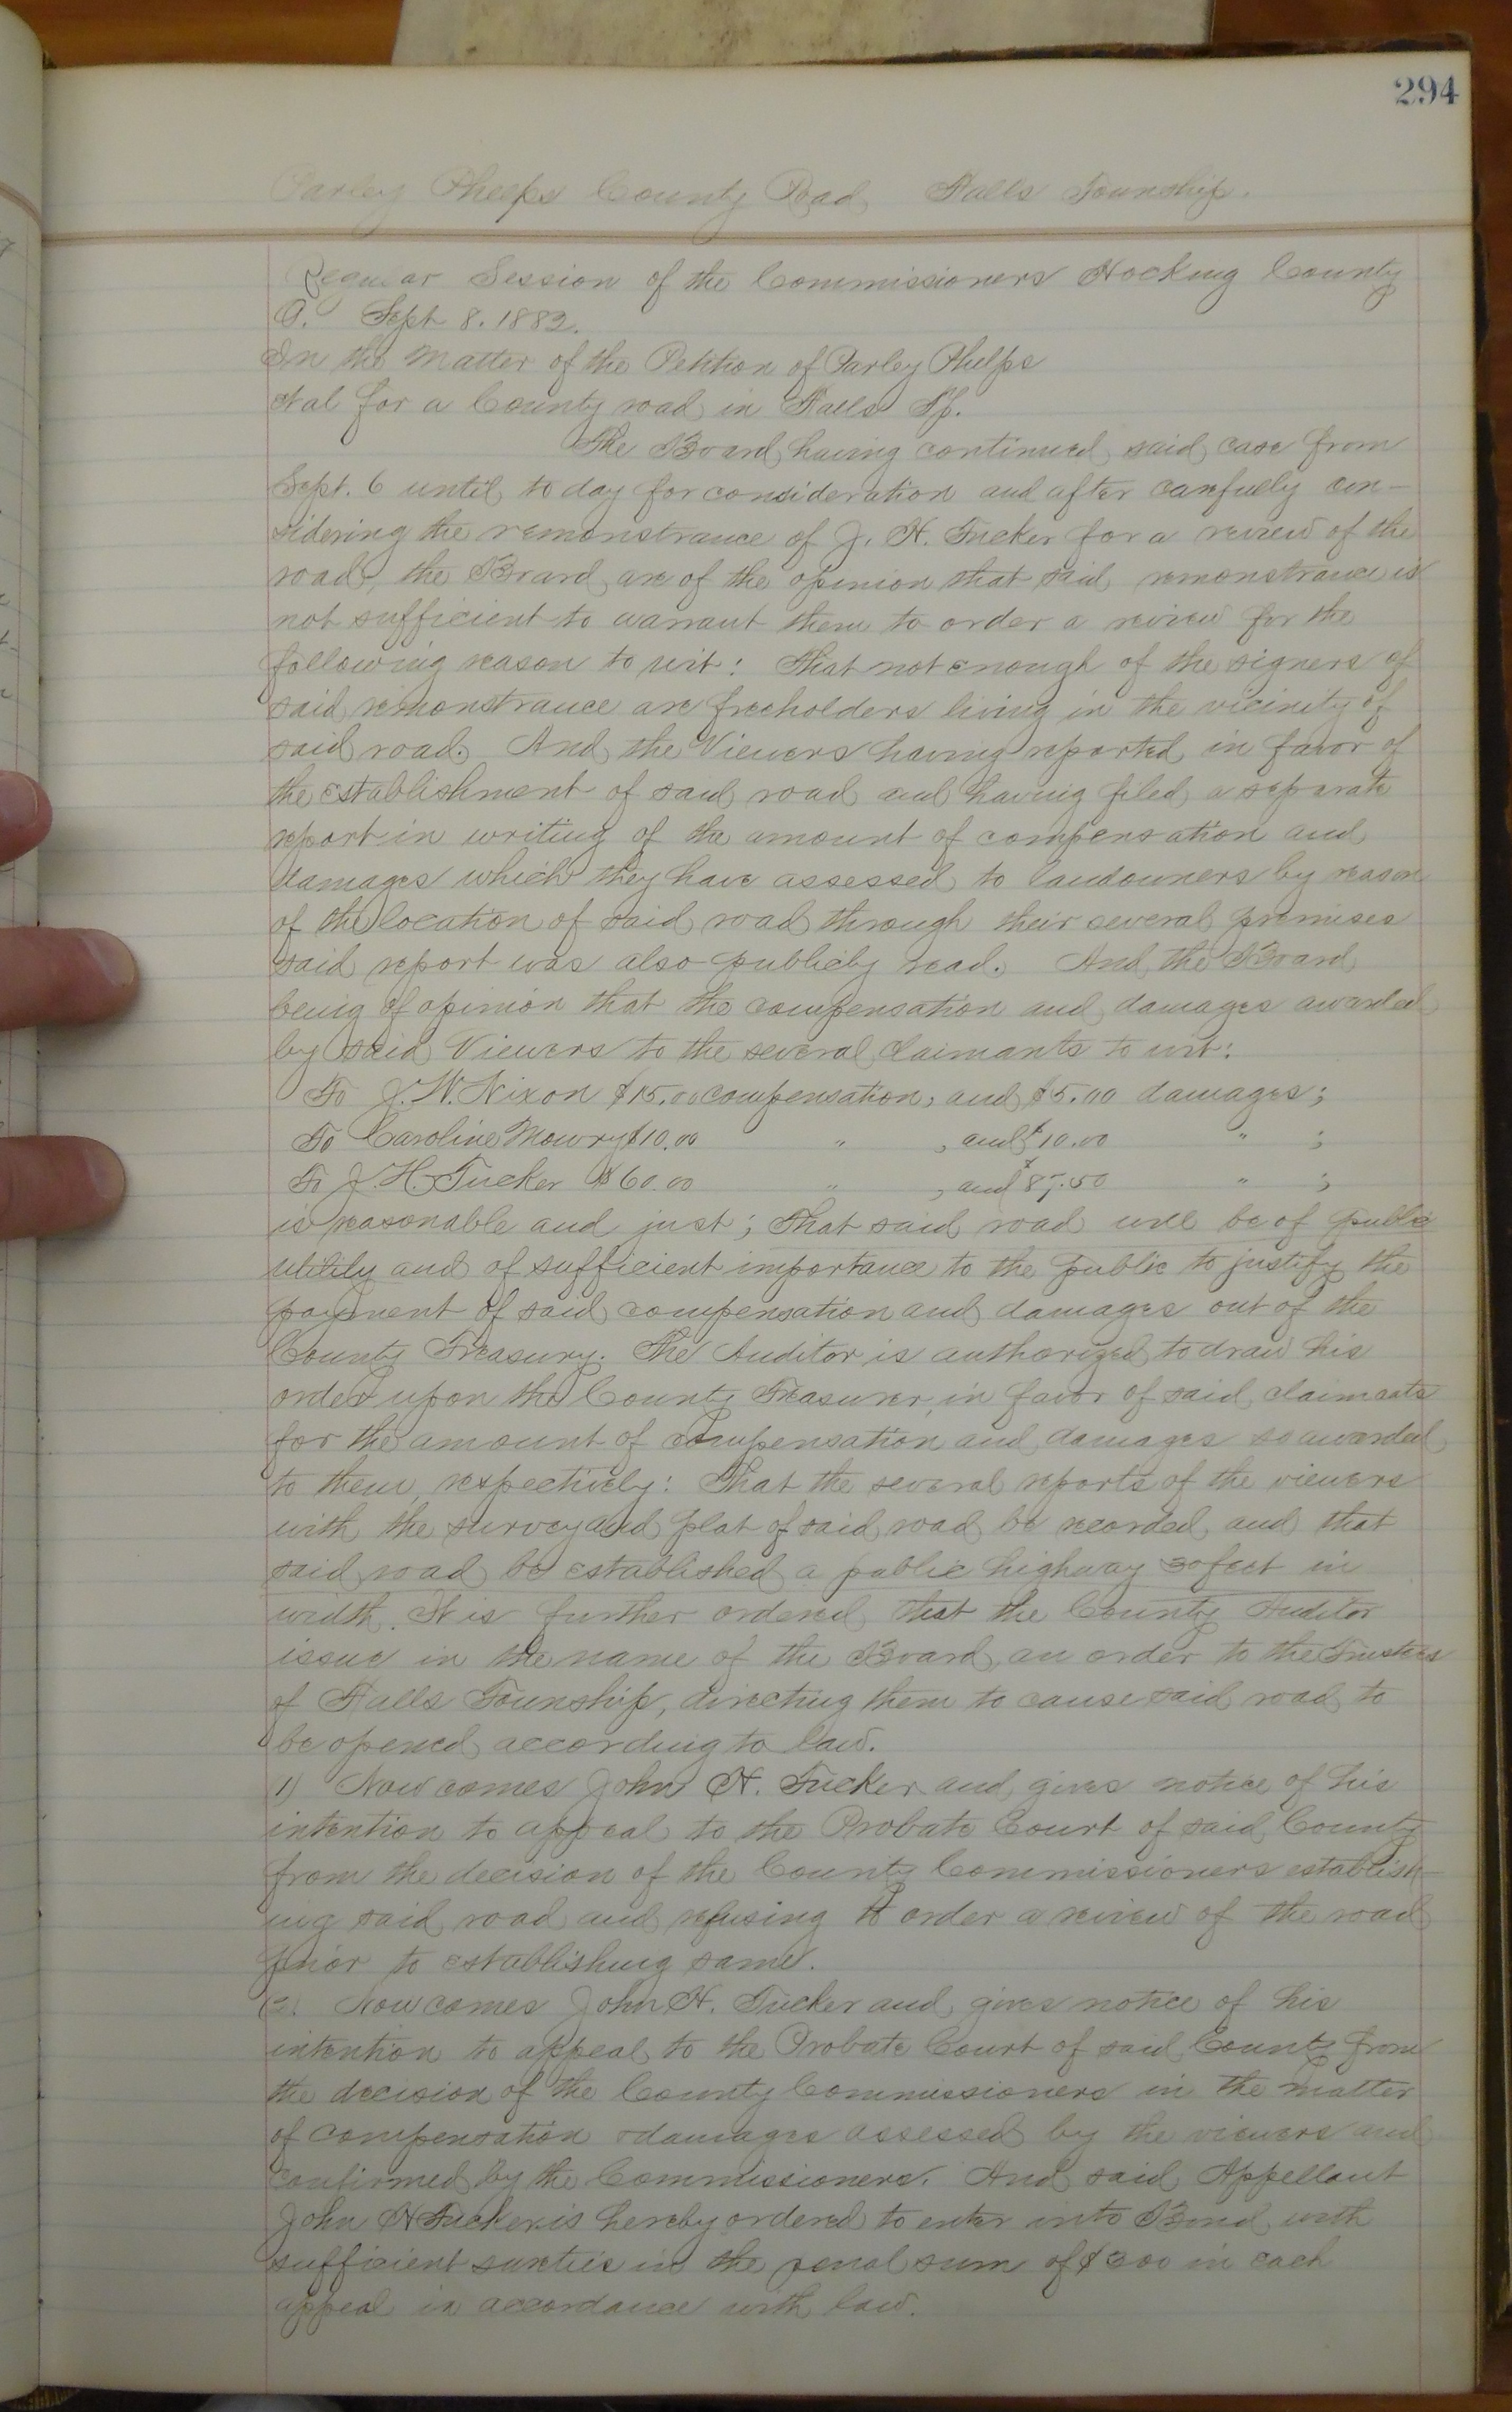 294
Parley Phelps County Road, Falls Township.
Regular Session of the Commissioners Hocking County
O. Sept 8. 1882.
In the Matter of the Petition of Parley Phelps
et al for a County road in Falls Tp.
The Board having continued said case from
Sept. 6 until to day for consideration and after carefully con-
sidering the remonstrance of J. H. Tucker for a review of the
road, the Board are of the opinion that said remonstrance is
not sufficient to warrant them to order a review for the
following reason to wit: That not enough of the signers of
said remonstrance are freeholders living in the vicinity of
said road. And the Viewers having reported in favor of
the establishment of said road and having filed a separate
report in writing of the amount of compensation and
damages which they have assessed to landowners by reason
of the location of said road through their several premises
said report was also publicly read. And the Board
being of opinion that the compensation and damages awarded
by said Viewers to the several claimants to wit:
To J. W. Nixon $15.00 compensation, and $5.00 damages;
To Caroline Mowry $10.00 " , and $10.00 " ;
To J. H. Tucker $60.00 " , and $87.50 " ;
is reasonable and just; that said road will be of public
utility and of sufficient importance to the public to justify the
payment of said compensation and damages out of the
County Treasury. The Auditor is authorized to draw his
order upon the County Treasurer, in favor of said claimants
for the amount of compensation and damages so awarded
to them respectively: That the several reports of the viewers
with the survey and plat of said road be recorded, and that
said road be established a public highway 30 feet in
width. It is further ordered that the County Auditor
issue in the name of the Board, an order to the Trustees
of Falls Township, directing them to cause said road to
be opened according to law.
1) Now comes John H. Tucker and gives notice of his
intention to appeal to the Probate Court of said County
from the decision of the County Commissioners establish-
ing said road and refusing to order a review of the road
prior to establishing same.
(2). Now comes John H. Tucker and gives notice of his
intention to appeal to the Probate Court of said County from
the decision of the County Commissioners in the matter
of compensation & damages assessed by the viewers and
confirmed by the Commissioners. And said Appellant
John H Tucker is hereby ordered to enter into Bond with
sufficient sureties in the penal sum of $300 in each
appeal in accordance with law.